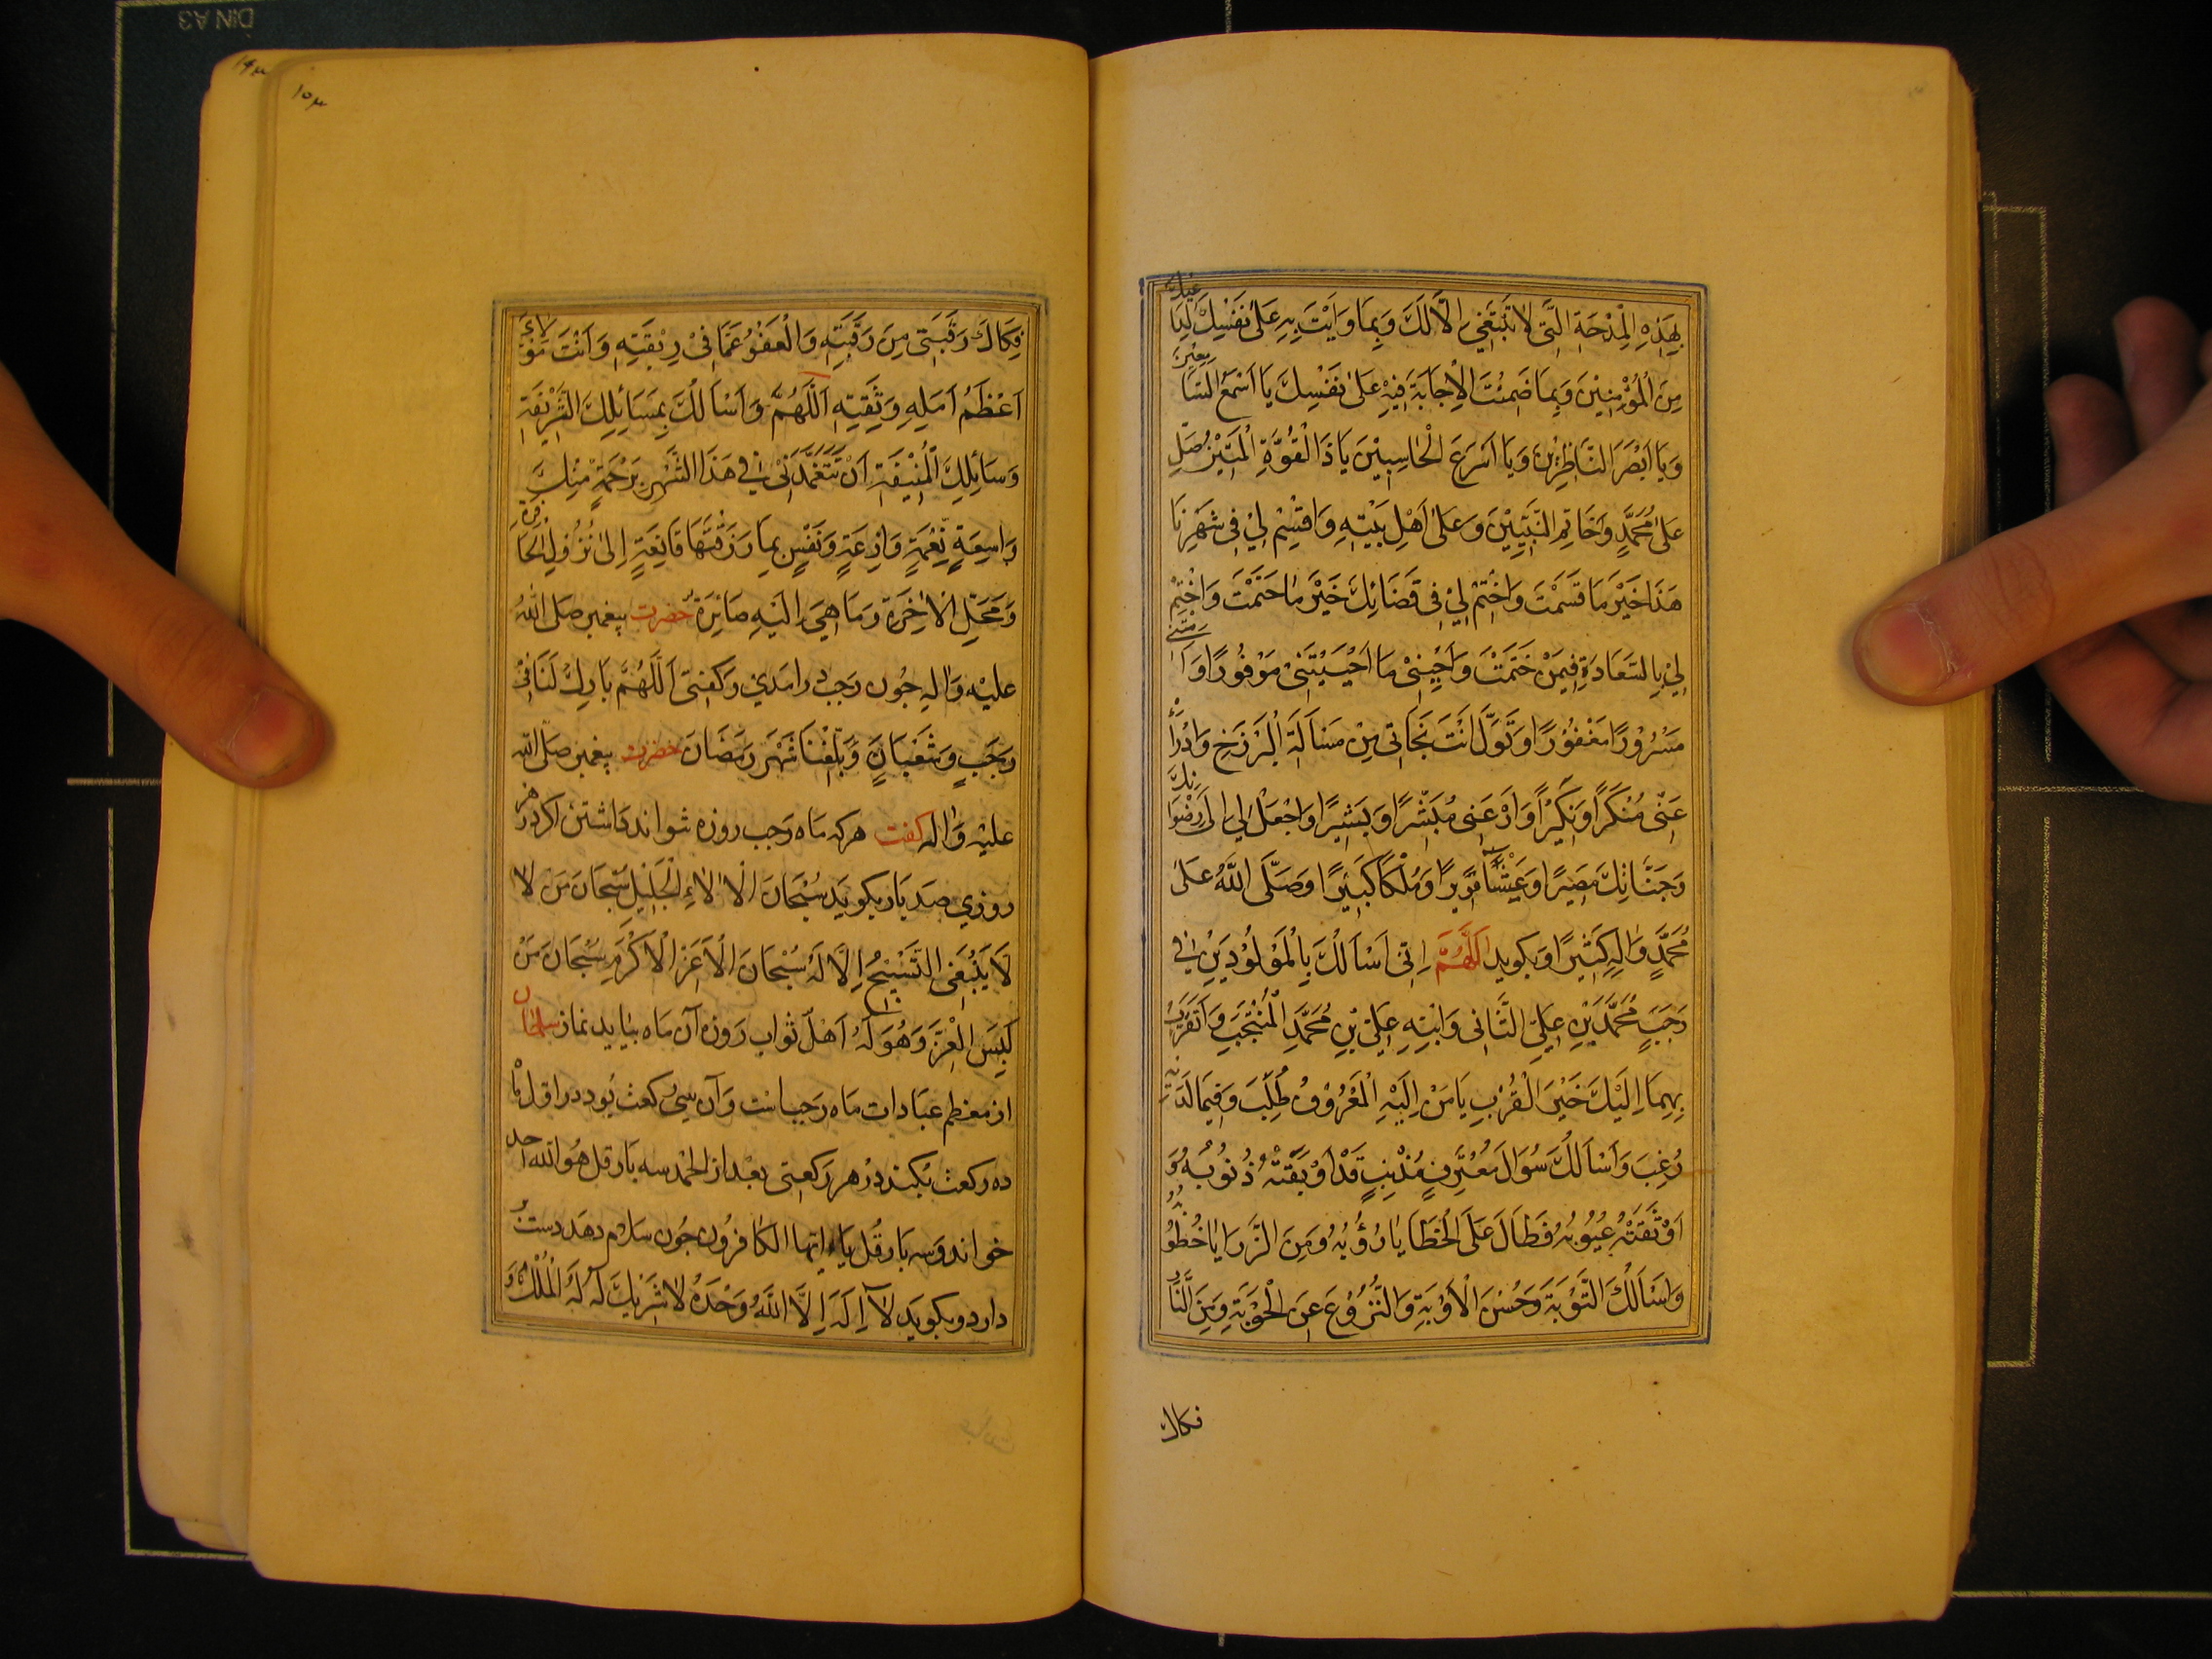 بِهَذِهِ الْمِدْحَةِ الَّتِي لَا تَنْبَغِي إِلَّا لَكَ وَبِمَا وَأَيْتَ بِهِ عَلَى نَفْسِكَ لِدَاعِيكَ
مِنَ الْمُؤْمِنِينَ وَبِمَا ضَمِنْتَ الْإِجَابَةَ فِيهِ عَلَى نَفْسِكَ يَا أَسْمَعَ السَّامِعِينَ
وَيَا أَبْصَرَ النَّاظِرِينَ وَيَا أَسْرَعَ الْحَاسِبِينَ يَا ذَا الْقُوَّةِ الْمَتِينُ صَلِّ
عَلَى مُحَمَّدٍ وَخَاتِمِ النَّبِيِّينَ وَعَلَى أَهْلِ بَيْتِهِ وَاقْسِمْ لِي فِي شَهْرِنَا
هَذَا خَيْرَ مَا قَسَمْتَ وَاخْتِمْ لِي فِي قَضَائِكَ خَيْرَ مَا حَتَمْتَ وَاخْتِمْ
لِي بِالسَّعَادَةِ فِيمَنْ خَتَمْتَ وَأَحْيِنِي مَا أَحْيَيْتَنِي مَوْفُورًا وَأَمِتْنِي
مَسْرُورًا مَغْفُورًا وَتَوَلَّ أَنْتَ نَجَاتِي مِنْ مَسْأَلَةِ الْبَرْزَخِ وَادْرَأْ
عَنِّي مُنْكَرًا وَنَكِيرًا وَأَرْعَنِي مُبَشِّرًا وَبَشِيرًا وَاجْعَلْ لِي إِلَى رِضْوَانِكَ
وَجَنَّاتِكَ مَصِيرًا وَعَيْشًا قَرِيرًا وَمُلْكًا كَبِيرًا وَصَلَّى اللَّهُ عَلَى
مُحَمَّدٍ وَآلِهِ كَثِيرًا وبكويد اَللَّهُمَّ إِنِّي أَسْأَلُكَ بِالْمَوْلُودَيْنِ فِي
رَجَبٍ مُحَمَّدِ بْنِ عَلِيٍّ الثَّانِي وَابْنِهِ عَلِيِّ بْنِ مُحَمَّدٍ الْمُنْتَجَبِ وَأَتَقَرَّبُ
بِهِمَا إِلَيْكَ خَيْرَ الْقُرَبِ يَا مَنْ إِلَيْهِ الْمَعْرُوفُ طُلِبَ وَفِيمَا لَدَيْهِ
رُغِبَ وَأَسْأَلُكَ سُؤَالَ مُعْتَرِفٍ مُذْنِبٍ قَدْ أَوْبَقَتْهُ ذُنُوبُهُ وَ
أَوْثَقَتْهُ عُيُوبُهُ فَطَالَ عَلَى الْخَطَايَا دُؤُبُهُ وَمِنَ الرَّزَايَا خُطُوبُهُ
وَأَسْأَلُكَ التَّوْبَةَ وَحُسْنَ الْأَوْبَةِ وَالنُّزُوعَ عَنِ الْحَوْبَةِ وَمِنَ النَّارِ
فكاك
۱۵۳
فِكَاكَ رَقَبَتِي مِنْ رَقَبَتِهِ وَالْعَفْوَ عَمَّا فِي رِبْقَتِهِ وَأَنْتَ مَوْلَايَ
أَعْظَمُ أَمَلِهِ وَثِقَتِهِ اَللَّهُمَّ وَأَسْأَلُكَ بِمَسَائِلِكَ الشَّرِيفَةِ
وَسَائِلِكَ الْمُنِيفَةِ أَنْ تَتَغَمَّدَنِي فِي هَذَا الشَّهْرِ بِرَحْمَةٍ مِنْكَ
وَاسِعَةٍ نِعْمَةٍ وَازِعَةٍ وَنَفْسٍ بِمَا رَزَقْتَهَا قَانِعَةٍ إِلَى نُزُولِ الْحَافِرَةِ
وَمَحَلِّ الْآخِرَةِ وَمَا هِيَ إِلَيْهِ صَائِرَةٌ حضرت پیغمبر صلی الله
علیه وآله چون رجب درآمدی وکفتی اَللَّهُمَّ بَارِكْ لَنَا فِي
رَجَبٍ وَشَعْبَانَ وَبَلِّغْنَا شَهْرَ رَمَضَانَ حضرت پیغمبر صلی الله
علیه وآله کفت هرکه ماه رجب روزه نتواند داشتن اکر در هر
روزی صد بار بکوید سُبْحَانَ الْإِلَهِ الْجَلِيلِ سُبْحَانَ مَنْ لَا
لَا يَنْبَغِي التَّسْبِيحُ إِلَّا لَهُ سُبْحَانَ الْأَعَزِّ الْأَكْرَمِ سُبْحَانَ مَنْ
لَبِسَ الْعِزَّ وَهُوَ لَهُ أَهْلٌ ثواب روزه آن ماه بیابد نماز سلمان
از معظم عبادات ماه رجب است وآن سی رکعت بود در اول ماه
ده رکعت بکند در هر رکعتی بعد از الحمد سه بار قل هو الله احد
خواند وسه بار قل یا ایها الکافرون چون سلام دهد دست بر
دارد وبکوید لَا إِلَهَ إِلَّا اللَّهُ وَحْدَهُ لَا شَرِيكَ لَهُ لَهُ الْمُلْكُ وَ